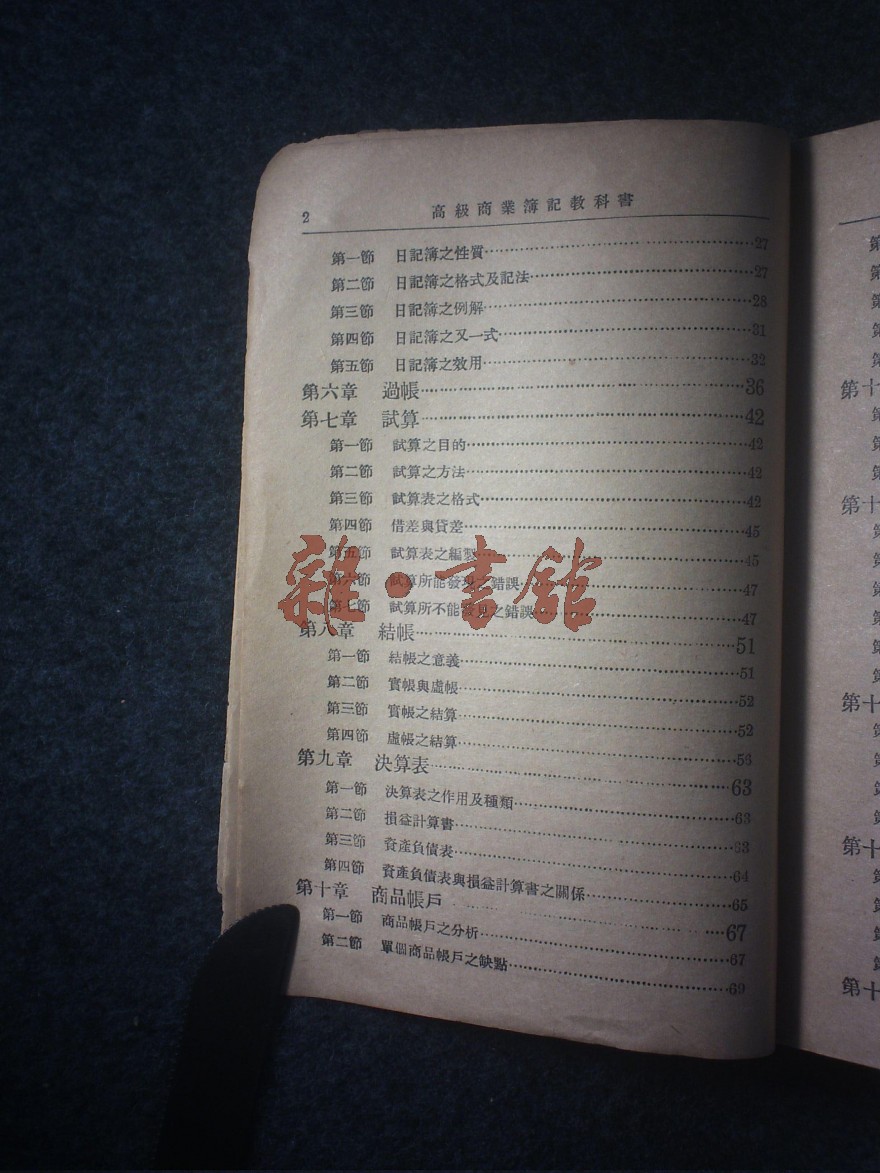 2 高級商業簿記教科書
第一節 日記簿之性質 27
第二節 日記簿之格式及記法 27
第三節 日記簿之例解 28
第四節 日記簿之又一式 31
第五節 日記簿之效用 32
第六章 過帳 36
第七章 試算 42
第一節 試算之目的 42
第二節 試算之方法 42
第三節 試算表之格式 42
第四節 借差與貸差 45
第五節 試算表之編製 45
第六節 試算所能發現之錯誤 47
第七節 試算所不能發見之錯誤 47
雜·書館
第八章 結帳 51
第一節 結帳之意義 51
第二節 實帳與虛帳 52
第三節 實帳之結算 52
第四節 虛帳之結算 56
第九章 決算表 63
第一節 決算表之作用及種類 63
第二節 損益計算書 63
第三節 資產負債表 64
第四節 資產負債表與損益計算書之關係 65
第十章 商品帳戶 67
第一節 商品帳戶之分析 67
第二節 單個商品帳戶之缺點 69